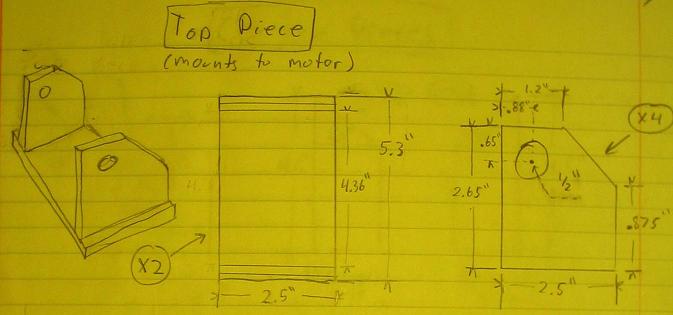 Top Piece
(mounts to motor)
1.2"
.88"
X4
.65"
5.3"
4.36"
2.65"
1/2"
.875
X2
2.5"
2.5"